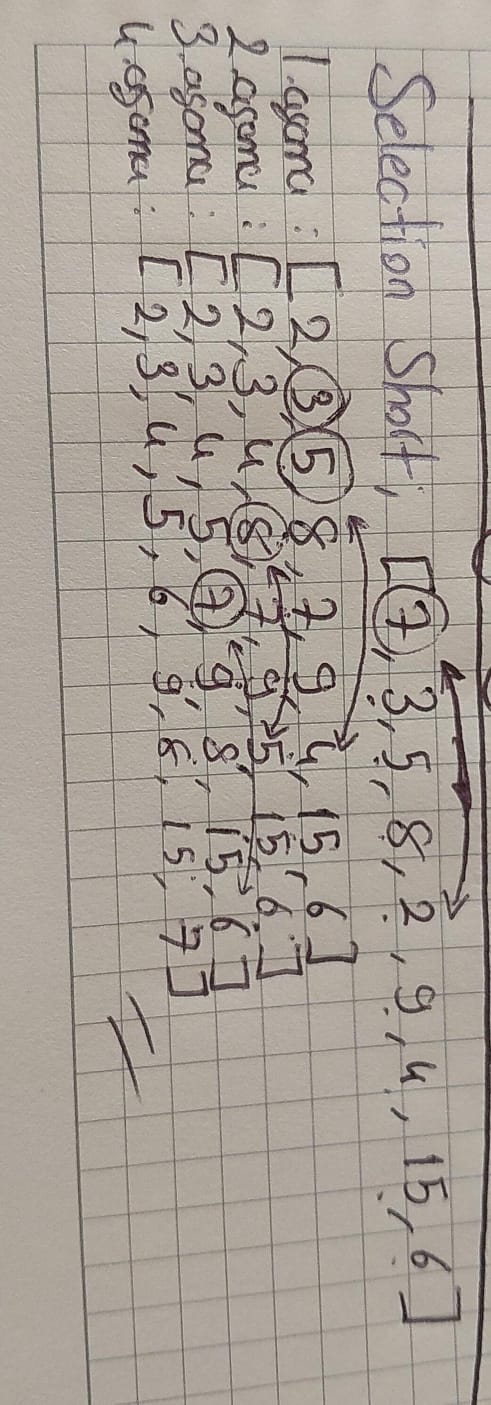 Selection Short; [7, 3, 5, 8, 2, 9, 4, 15, 6]
1.aşama : [2, 3, 5, 8, 7, 9, 4, 15, 6]
2 aşama : [2, 3, 4, 8, 7, 9, 5, 15, 6]
3.aşama : [2, 3, 4, 5, 7, 9, 8, 15, 6]
4.aşama : [2, 3, 4, 5, 6, 9, 8, 15, 7]